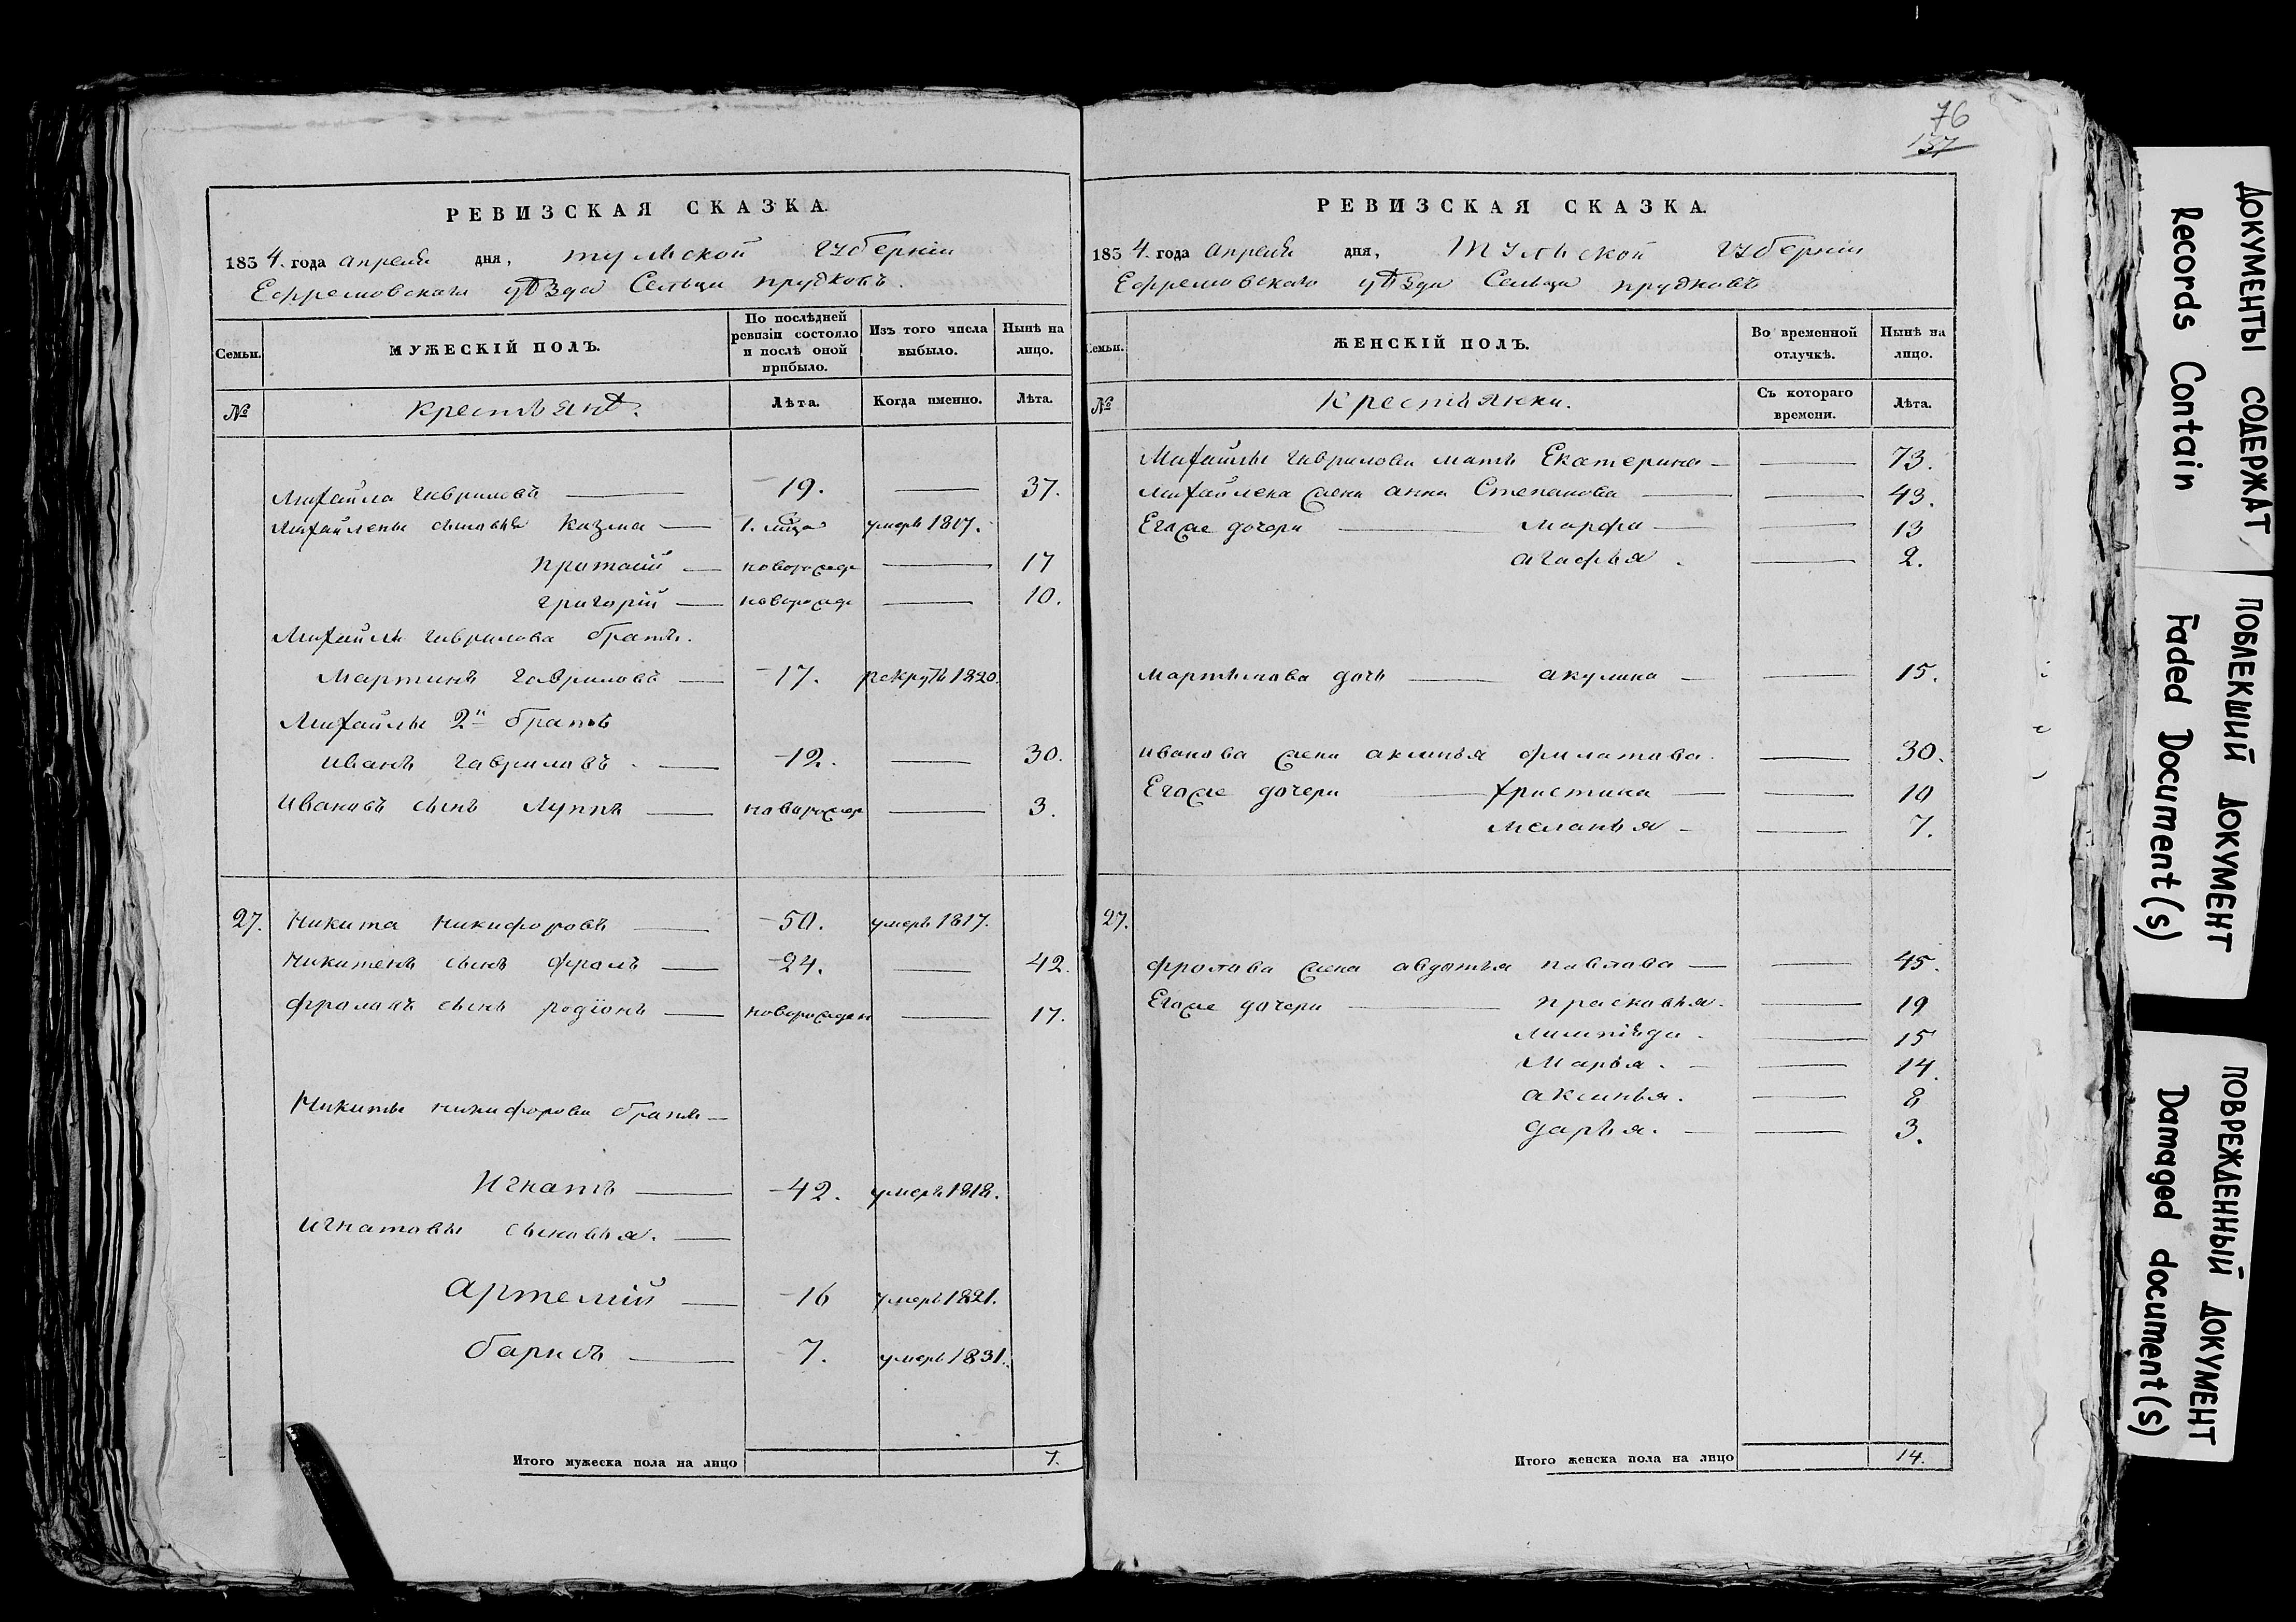 76
137
РЕВИЗСКАЯ СКАЗКА.
1834. года апреля дня, тульской губерніи
Ефремовскаго уѣзда Сельца прудковъ.
Семьи. МУЖЕСКІЙ ПОЛЪ. По послѣдней ревизіи состояло и послѣ оной прибыло. Изъ того числа выбыло. Нынѣ на лицо.
№ крестьянѣ. Лѣта. Когда именно. Лѣта.
Михайла гавриловъ — 19. — 37.
Михайлены сыновья Казма — 1. мца умеръ 1817.
протасій — поворожде — 17
григорій — новорожде — 10.
Михайлы гаврилова братъ.
Мартинъ гавриловъ — 17. рекрутъ 1820.
Михайлы 2й братъ
иванъ гавриловъ. — 12. — 30.
Ивановъ сынъ Луппъ — новорожде — 3.
27. Никита никифоровъ — 50. умеръ 1817.
Никитенъ сынъ фролъ — 24. — 42.
фроловъ сынъ родіонъ — новорожден — 17.
Никиты никифорова братъ —
Игнатъ — 42. умеръ 1818.
игнатовы сыновья. —
артемій — 16 умеръ 1821.
барисъ — 7. умеръ 1831.
Итого мужеска пола на лицо 7.
РЕВИЗСКАЯ СКАЗКА.
1834. года апреля дня, Тульской губерніи
Ефремовскаго уѣзда Сельца прудковъ
Семьи. ЖЕНСКІЙ ПОЛЪ. Во временной отлучкѣ. Нынѣ на лицо.
№ крестьянки. Съ котораго времени. Лѣта.
Михайлы гаврилова мать Екатерина — — 73.
михайлена жена анна Степанова — — 43.
Егоже дочери — марфа — — 13
агафья. — 2.
мартынова дочь — акулина — — 15.
иванова жена аксинья филатова. — 30.
Егоже дочери — христина — — 10
меланья — — 7.
27.
фролова жена авдотья павлова — — 45.
Егоже дочери — прасковья. — 19
— 15
Марья. — — 14.
аксинья. — 8
дарья. — — 3.
Итого женска пола на лицо 14.
ДОКУМЕНТЫ СОДЕРЖАТ
Records Contain
ПОБЛЕКШИЙ ДОКУМЕНТ
Faded Document(s)
ПОВРЕЖДЕННЫЙ ДОКУМЕНТ
Damaged document(s)